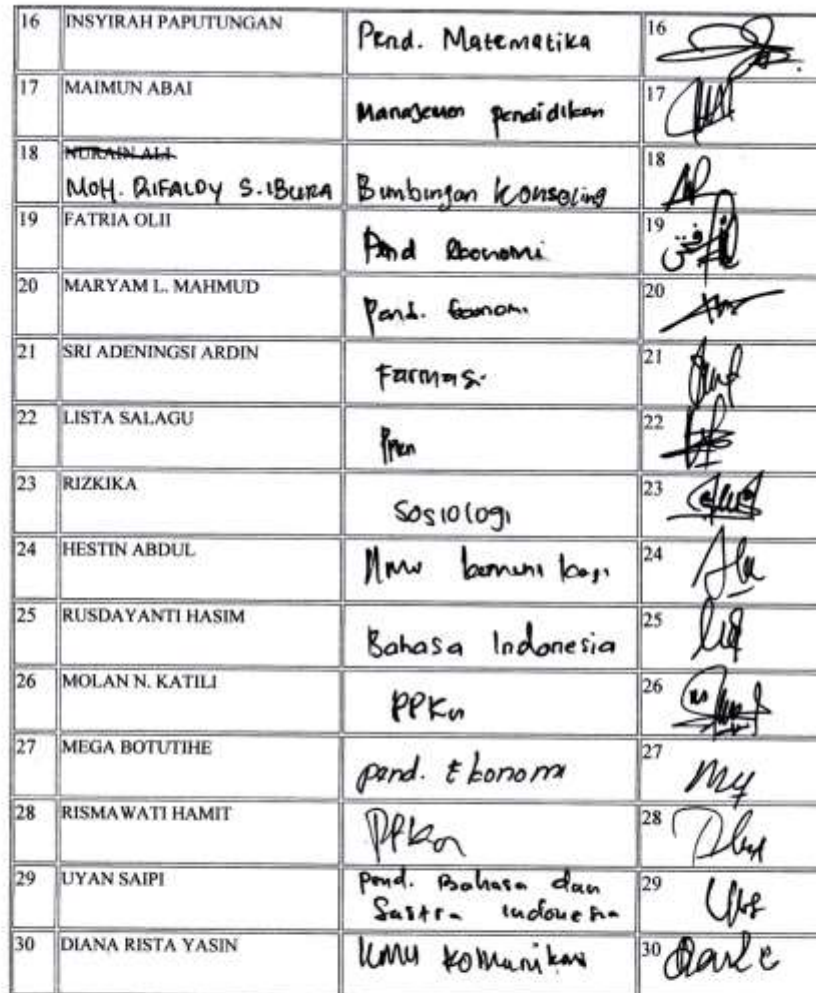 16 INSYIRAH PAPUTUNGAN Pend. Matematika 16
17 MAIMUN ABAI Manajemen pendidikan 17
18 NURAIN ALI 18
MOH. RIFALDY S. IBURA Bimbingan Konseling
19 FATRIA OLII Pend Ekonomi 19
20 MARYAM L. MAHMUD Pend. Ekonomi 20
21 SRI ADENINGSI ARDIN Farmasi 21
22 LISTA SALAGU PPKn 22
23 RIZKIKA Sosiologi 23
24 HESTIN ABDUL Ilmu komunikasi 24
25 RUSDAYANTI HASIM Bahasa Indonesia 25
26 MOLAN N. KATILI PPKn 26
27 MEGA BOTUTIHE pend. Ekonomi 27
28 RISMAWATI HAMIT PPKn 28
29 UYAN SAIPI pend. Bahasa dan 29
Sastra indonesia
30 DIANA RISTA YASIN ilmu komunikasi 30